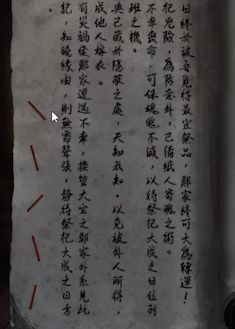 日終於被吾覓得最宜祭品，鄭家終可大為轉運！
祀危險，為防意外，已備紙人寄魂之術。
不幸喪命，可保魂魄不滅，以待祭祀大成之日位列
班之機。
典已藏於隱蔽之處，天知我知，以免被外人所得，
成他人嫁衣。
有災禍使鄭家遭遇不幸，接管大宅之鄭家外系見此
記，知曉緣由，則無需聲張，靜待祭祀大成之日方
。